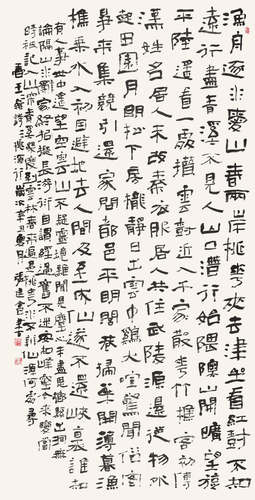 漁舟逐水愛山春兩岸桃花夾去津坐看紅樹不知
遠行盡青溪不見人山口潛行始隈隩山開曠望旋
平陸遙看一處攢雲樹近入千家散花竹樵客初傳
漢姓名居人未改秦衣服居人共住武陵源還從物外
起田園月明松下房櫳靜日出雲中雞犬喧驚聞俗客
爭來集競引還家問都邑平明閭巷掃花開薄暮漁
樵乘水入初因避地去人間及至成仙遂不還峽裏誰知
有人事世中遙望空雲山不疑靈境難聞見塵心未盡思鄉縣出洞無
論隔山水辭家終擬長游衍自謂經過舊不迷安知峰壑今來變當
時只記入山深青溪幾度到雲林春來遍是桃花水不辨仙源何處尋
書王維詩桃源行歲次辛丑夏月張建會書